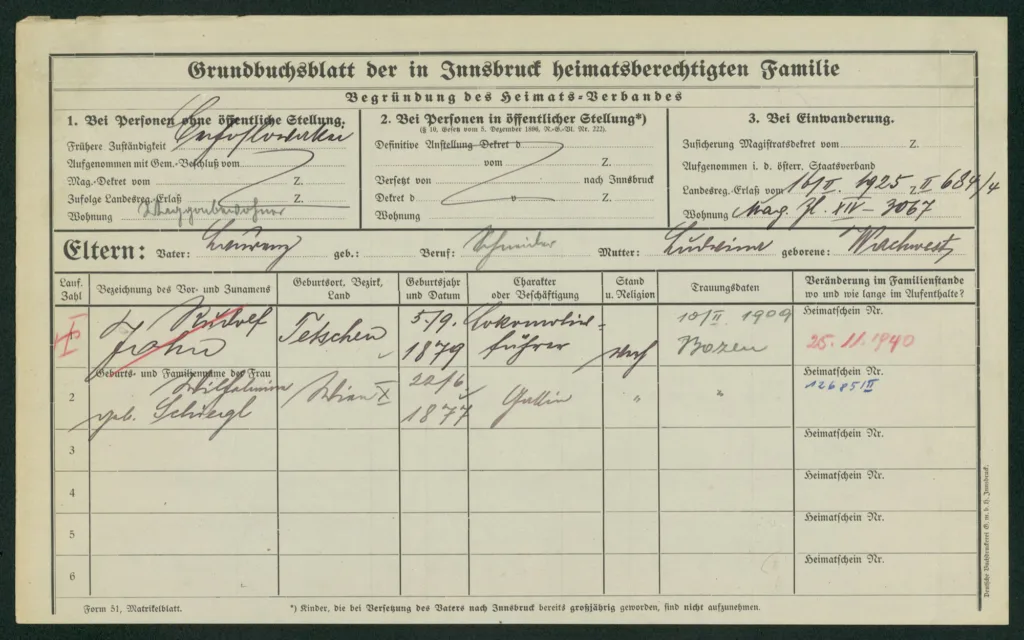 Grundbuchsblatt der in Innsbruck heimatsberechtigten Familie
Begründung des Heimats-Verbandes
1. Bei Personen ohne öffentliche Stellung:
Frühere Zuständigkeit
Aufgenommen mit Gem.-Beschluß vom
Mag.-Dekret vom Z.
Zufolge Landesreg.-Erlaß Z.
Wohnung
2. Bei Personen in öffentlicher Stellung*)
(§ 10, Gesetz vom 5. Dezember 1896, R.-G.-Bl. Nr. 222).
Definitive Anstellung Dekret d
vom Z.
Versetzt von nach Innsbruck
Dekret d v Z.
Wohnung
3. Bei Einwanderung.
Zusicherung Magistratsdekret vom Z.
Aufgenommen i. d. österr. Staatsverband
Landesreg.-Erlaß vom 16/II. 1925, II 684/4
Wohnung Mag. Zl. XIV-3067
Eltern: Vater: Laurenz geb.: Beruf: Schneider Mutter: Ludwina geborene:
Lauf. Zahl
Bezeichnung des Vor- und Zunamens
Geburtsort, Bezirk, Land
Geburtsjahr und Datum
Charakter oder Beschäftigung
Stand u. Religion
Trauungsdaten
Veränderung im Familienstande
wo und wie lange im Aufenthalte?
1 Rudolf Tetschen 5/9. Lokomotiv- 10/II. 1909 Heimatschein Nr.
John 1879 führer Bozen 25. 11. 1940
Geburts- und Familienname der Frau Heimatschein Nr.
2 Wilhelmine Wien X 22/6. Gattin " " 12685/II
geb. 1877
3 Heimatschein Nr.
4 Heimatschein Nr.
5 Heimatschein Nr.
6 Heimatschein Nr.
Form 51, Matrikelblatt.
*) Kinder, die bei Versetzung des Vaters nach Innsbruck bereits großjährig geworden, sind nicht aufzunehmen.
Deutsche Buchdruckerei G. m. b. H. Innsbruck.